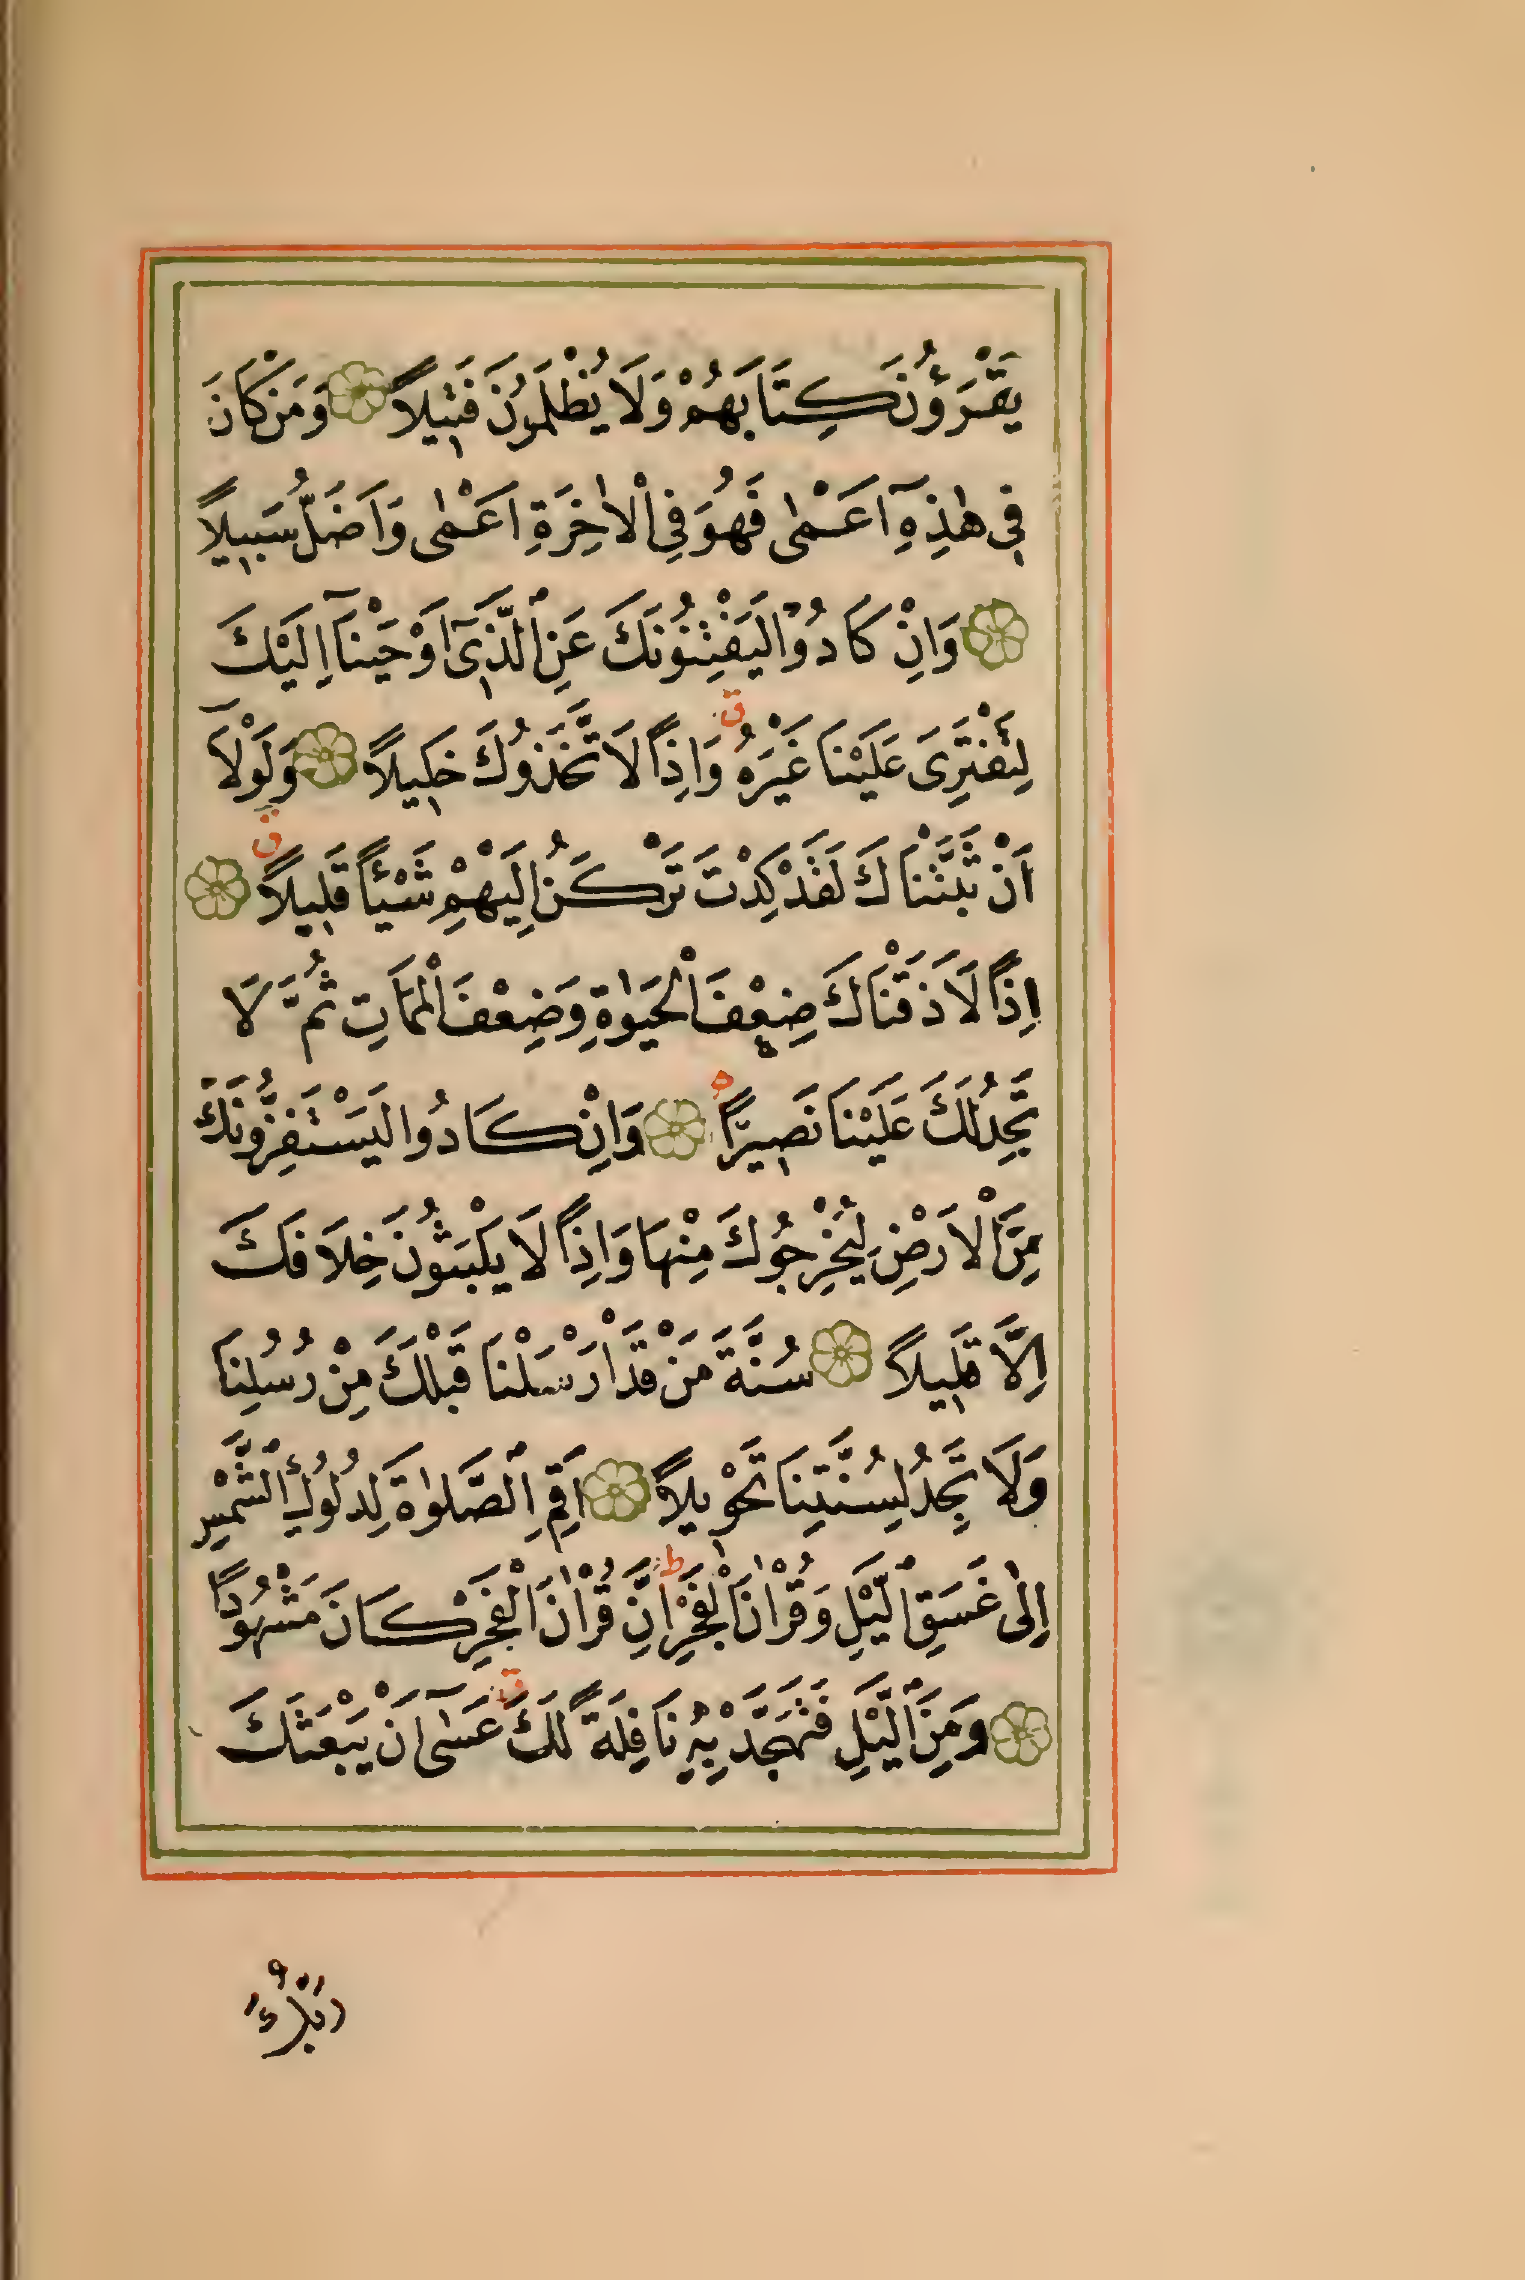 يَقْرَؤُنَ كِتَابَهُمْ وَلَا يُظْلَمُونَ فَتِيلًا ۞ وَمَنْ كَانَ
فِي هٰذِهِٓ اَعْمٰى فَهُوَ فِي الْاٰخِرَةِ اَعْمٰى وَاَضَلُّ سَبِيلًا
۞ وَاِنْ كَادُوا لَيَفْتِنُونَكَ عَنِ الَّذِٓي اَوْحَيْنَٓا اِلَيْكَ
لِتَفْتَرِيَ عَلَيْنَا غَيْرَهُ ق وَاِذًا لَاتَّخَذُوكَ خَلِيلًا ۞ وَلَوْلَٓا
اَنْ ثَبَّتْنَاكَ لَقَدْ كِدْتَ تَرْكَنُ اِلَيْهِمْ شَيْـًٔا قَلِيلًا ق ۞
اِذًا لَاَذَقْنَاكَ ضِعْفَ الْحَيٰوةِ وَضِعْفَ الْمَمَاتِ ثُمَّ لَا
تَجِدُ لَكَ عَلَيْنَا نَصِيرًا ۞ وَاِنْ كَادُوا لَيَسْتَفِزُّونَكَ
مِنَ الْاَرْضِ لِيُخْرِجُوكَ مِنْهَا وَاِذًا لَا يَلْبَثُونَ خِلَافَكَ
اِلَّا قَلِيلًا ۞ سُنَّةَ مَنْ قَدْ اَرْسَلْنَا قَبْلَكَ مِنْ رُسُلِنَا
وَلَا تَجِدُ لِسُنَّتِنَا تَحْوِيلًا ۞ اَقِمِ الصَّلٰوةَ لِدُلُوكِ الشَّمْسِ
اِلٰى غَسَقِ الَّيْلِ وَقُرْاٰنَ الْفَجْرِ ط اِنَّ قُرْاٰنَ الْفَجْرِ كَانَ مَشْهُودًا
۞ وَمِنَ الَّيْلِ فَتَهَجَّدْ بِهٖ نَافِلَةً لَكَ ق عَسٰٓى اَنْ يَبْعَثَكَ
رَبُّكَ